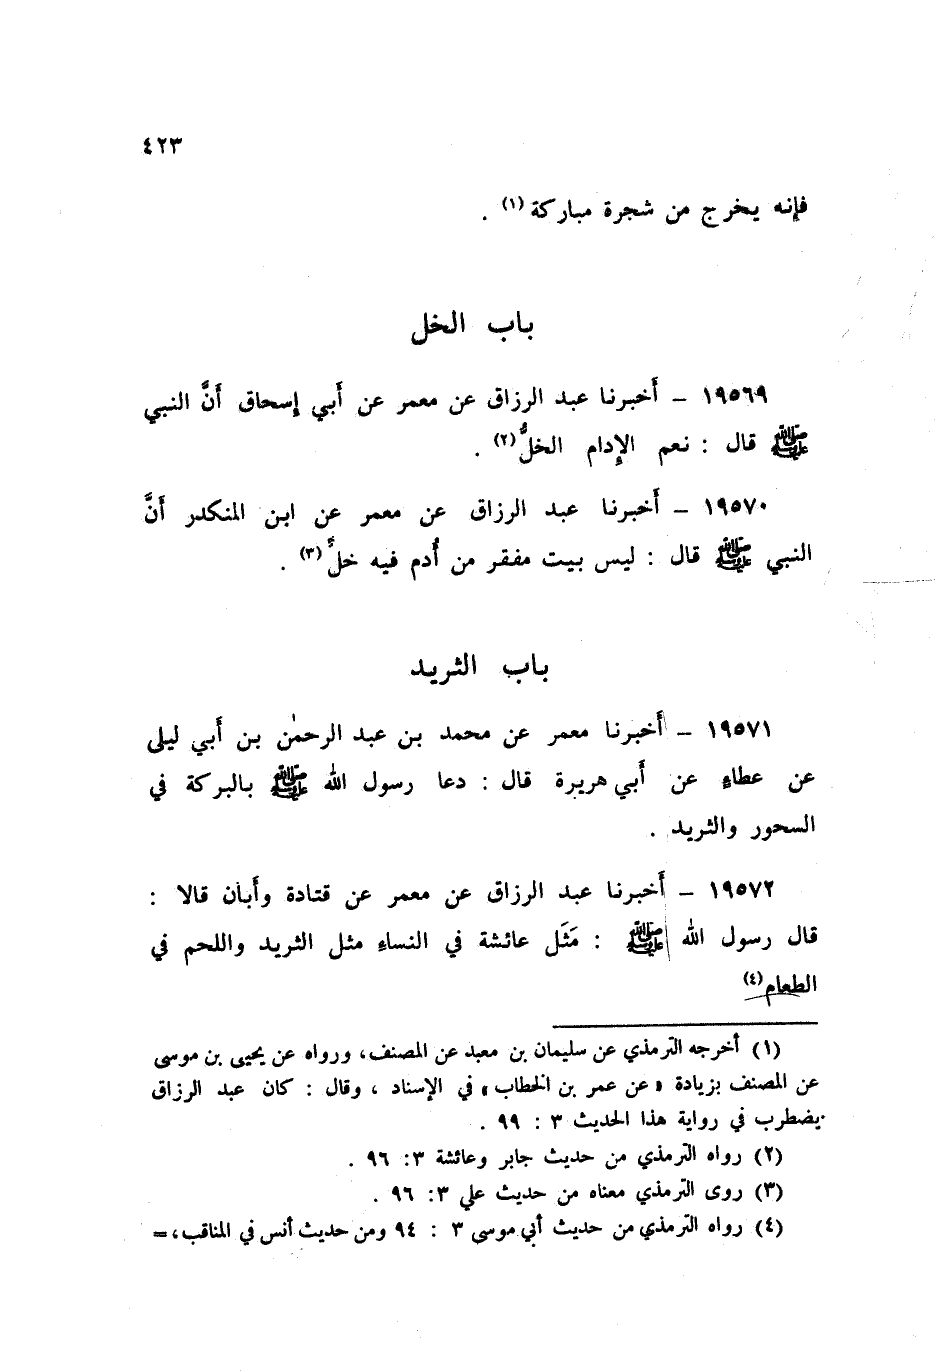 ٤٢٣
فإنه يخرج من شجرة مباركة (١) .
باب الخل
١٩٥٦٩ – أخبرنا عبد الرزاق عن معمر عن أبي إسحاق أنَّ النبي
ﷺ قال : نعم الإدام الخلُّ (٢) .
١٩٥٧٠ – أخبرنا عبد الرزاق عن معمر عن ابن المنكدر أنَّ
النبي ﷺ قال : ليس بيت مفقر من أُدم فيه خلٌّ (٣) .
باب الثريد
١٩٥٧١ – أخبرنا معمر عن محمد بن عبد الرحمٰن بن أبي ليلى
عن عطاءٍ عن أبي هريرة قال : دعا رسول الله ﷺ بالبركة في
السحور والثريد .
١٩٥٧٢ – أخبرنا عبد الرزاق عن معمر عن قتادة وأبان قالا :
قال رسول الله ﷺ : مَثَل عائشة في النساءِ مثل الثريد واللحم في
الطعام (٤)
(١) أخرجه الترمذي عن سليمان بن معبد عن المصنف، ورواه عن يحيى بن موسى
عن المصنف بزيادة «عن عمر بن الخطاب» في الإسناد ، وقال : كان عبد الرزاق
يضطرب في رواية هذا الحديث ٣ : ٩٩ .
(٢) رواه الترمذي من حديث جابر وعائشة ٣: ٩٦ .
(٣) روى الترمذي معناه من حديث علي ٣: ٩٦ .
(٤) رواه الترمذي من حديث أبي موسى ٣ : ٩٤ ومن حديث أنس في المناقب، =